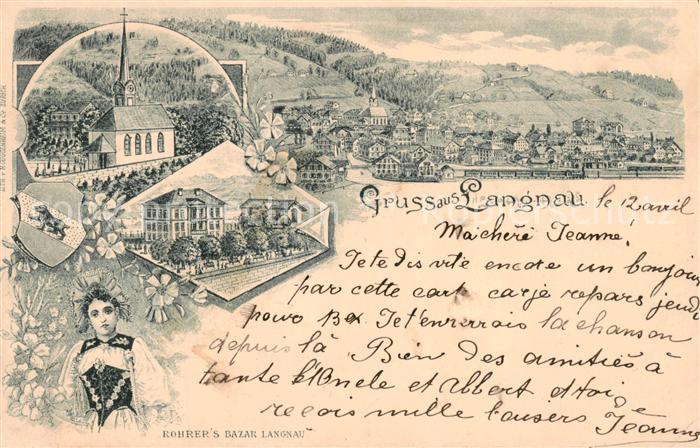 Gruss aus Langnau. le 12 avril
Ma cherè Jeanne!
Je te dis vite encore un bonjour
par cette cart car je repars jeudi
pour Bex Je t'enverrais la chanson
depuis là Bien des amitiés à
tante l'Oncle et Albert et toi
reçois mille baisers Jeanne
ROHRER'S BAZAR LANGNAU